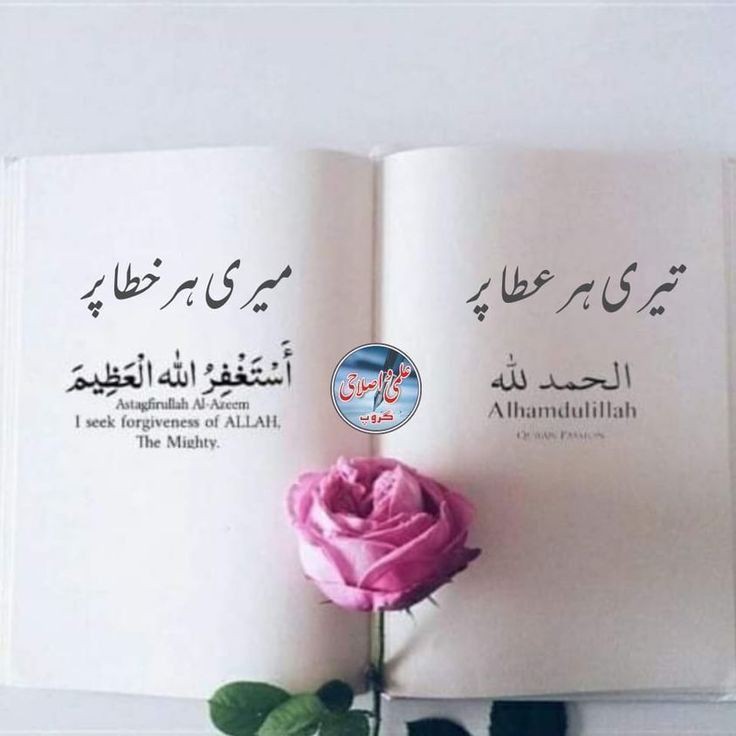 تیری ہر عطا پر
الحمد لله
Alhamdulillah
QURAN PASSION
میری ہر خطا پر
أَسْتَغْفِرُ اللہ الْعَظِيمَ
Astagfirullah Al-Azeem
I seek forgiveness of ALLAH,
The Mighty.
علمی و اصلاحی
گروپ